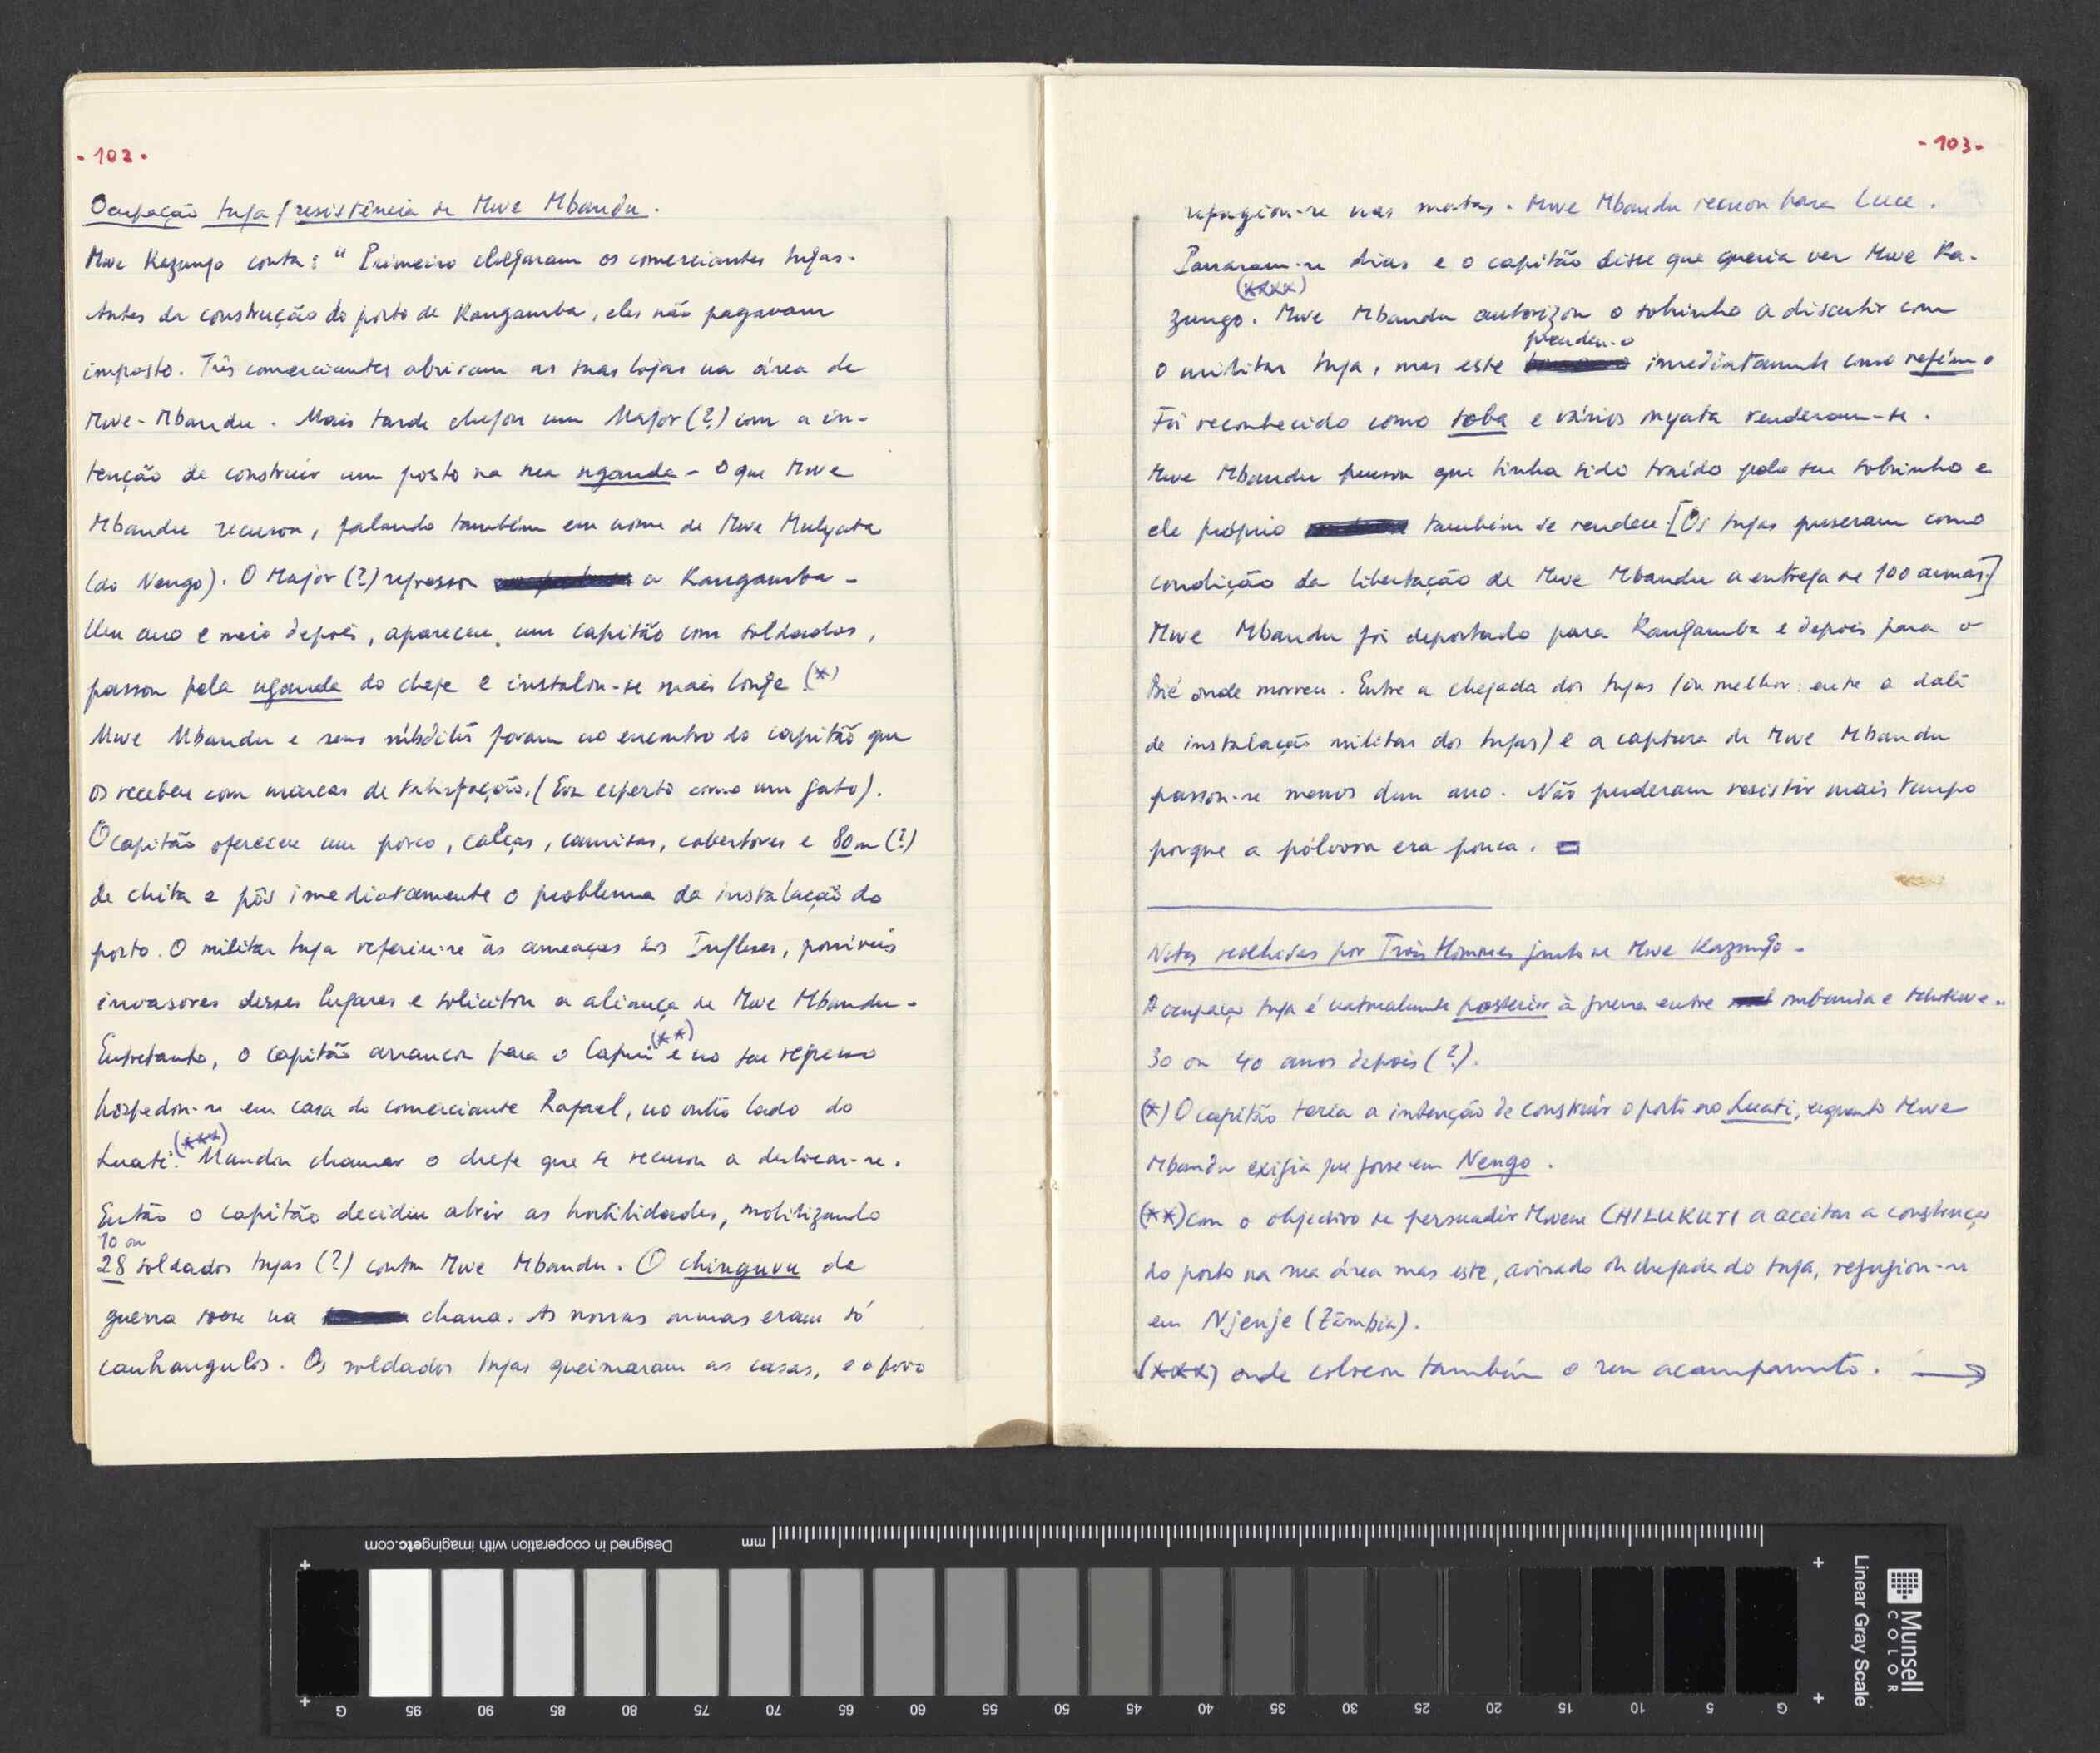 - 102 -
Ocupação tuga / resistência de Mwe Mbandu.
Mwe Kazungo conta: " Primeiro chegaram os comerciantes tugas.
Antes da construção do posto de Kangamba, eles não pagavam
imposto. Três comerciantes abriram as suas lojas na área de
Mwe-Mbandu. Mais tarde chegou um Major (?) com a in-
tenção de construir um posto na sua nganda - O que Mwe
Mbandu recusou, falando também em nome de Mwe Mulyata
(do Nengo). O Major (?) regressou a Kangamba -
Um ano e meio depois, apareceu um capitão com soldados,
passou pela nganda do chefe e instalou-se mais longe (*)
Mwe Mbandu e seus súbditos foram ao encontro do capitão que
os recebeu com marcas de satisfação. (Era esperto como um gato).
O capitão ofereceu um porco, calças, camisas, cobertores e 80m (?)
de chita e pôs imediatamente o problema da instalação do
posto. O militar tuga referiu-se às ameaças dos Ingleses, possíveis
invasores desses lugares e solicitou a aliança de Mwe Mbandu -
Entretanto, o capitão arrancou para o Capui (**) e no seu regresso
hospedou-se em casa do comerciante Rafael, no outro lado do
Luati. (***) Mandou chamar o chefe que se recusou a deslocar-se.
Então o capitão decidiu abrir as hostilidades, mobilizando
10 ou
28 soldados tugas (?) contra Mwe Mbandu. O chinguvu de
guerra soou na chana. As nossas armas eram só
canhangulos. Os soldados tugas queimaram as casas, e o povo
- 103 -
refugiou-se nas matas. Mwe Mbandu recuou para Luce.
Passaram-se dias e o capitão disse que queria ver Mwe Ka-
zungo. (****) Mwe Mbandu autorizou o sobrinho a discutir com
o militar tuga, mas este prendeu-o imediatamente como refém.
Foi reconhecido como soba e vários myata renderam-se.
Mwe Mbandu pensou que tinha sido traído pelo seu sobrinho e
ele próprio também se rendeu. [Os tugas puseram como
condição da libertação de Mwe Mbandu a entrega de 100 armas.]
Mwe Mbandu foi deportado para Kangamba e depois para o
Bié onde morreu. Entre a chegada dos tugas (ou melhor: entre a data
de instalação militar dos tugas) e a captura de Mwe Mbandu
passou-se menos dum ano. Não puderam resistir mais tempo
porque a pólvora era pouca.
Notas recolhidas por Trois Hommes junto de Mwe Kazungo -
A ocupação tuga é naturalmente posterior à guerra entre mbunda e tchokwe -
30 ou 40 anos depois (?).
(*) O capitão teria a intenção de construir o posto no Luati, enquanto Mwe
Mbandu exigia que fosse em Nengo.
(**) com o objectivo de persuadir Mwene CHILUKUTI a aceitar a construção
do posto na sua área mas este, avisado da chegada do tuga, refugiou-se
em Njenje (Zâmbia).
(***) onde colocou também o seu acampamento. →
Designed in cooperation with imagingetc.com
mm
G 95 90 85 80 75 70 65 60 55 50 45 40 35 30 25 20 15 10 5 G
Munsell
COLOR
Linear Gray Scale